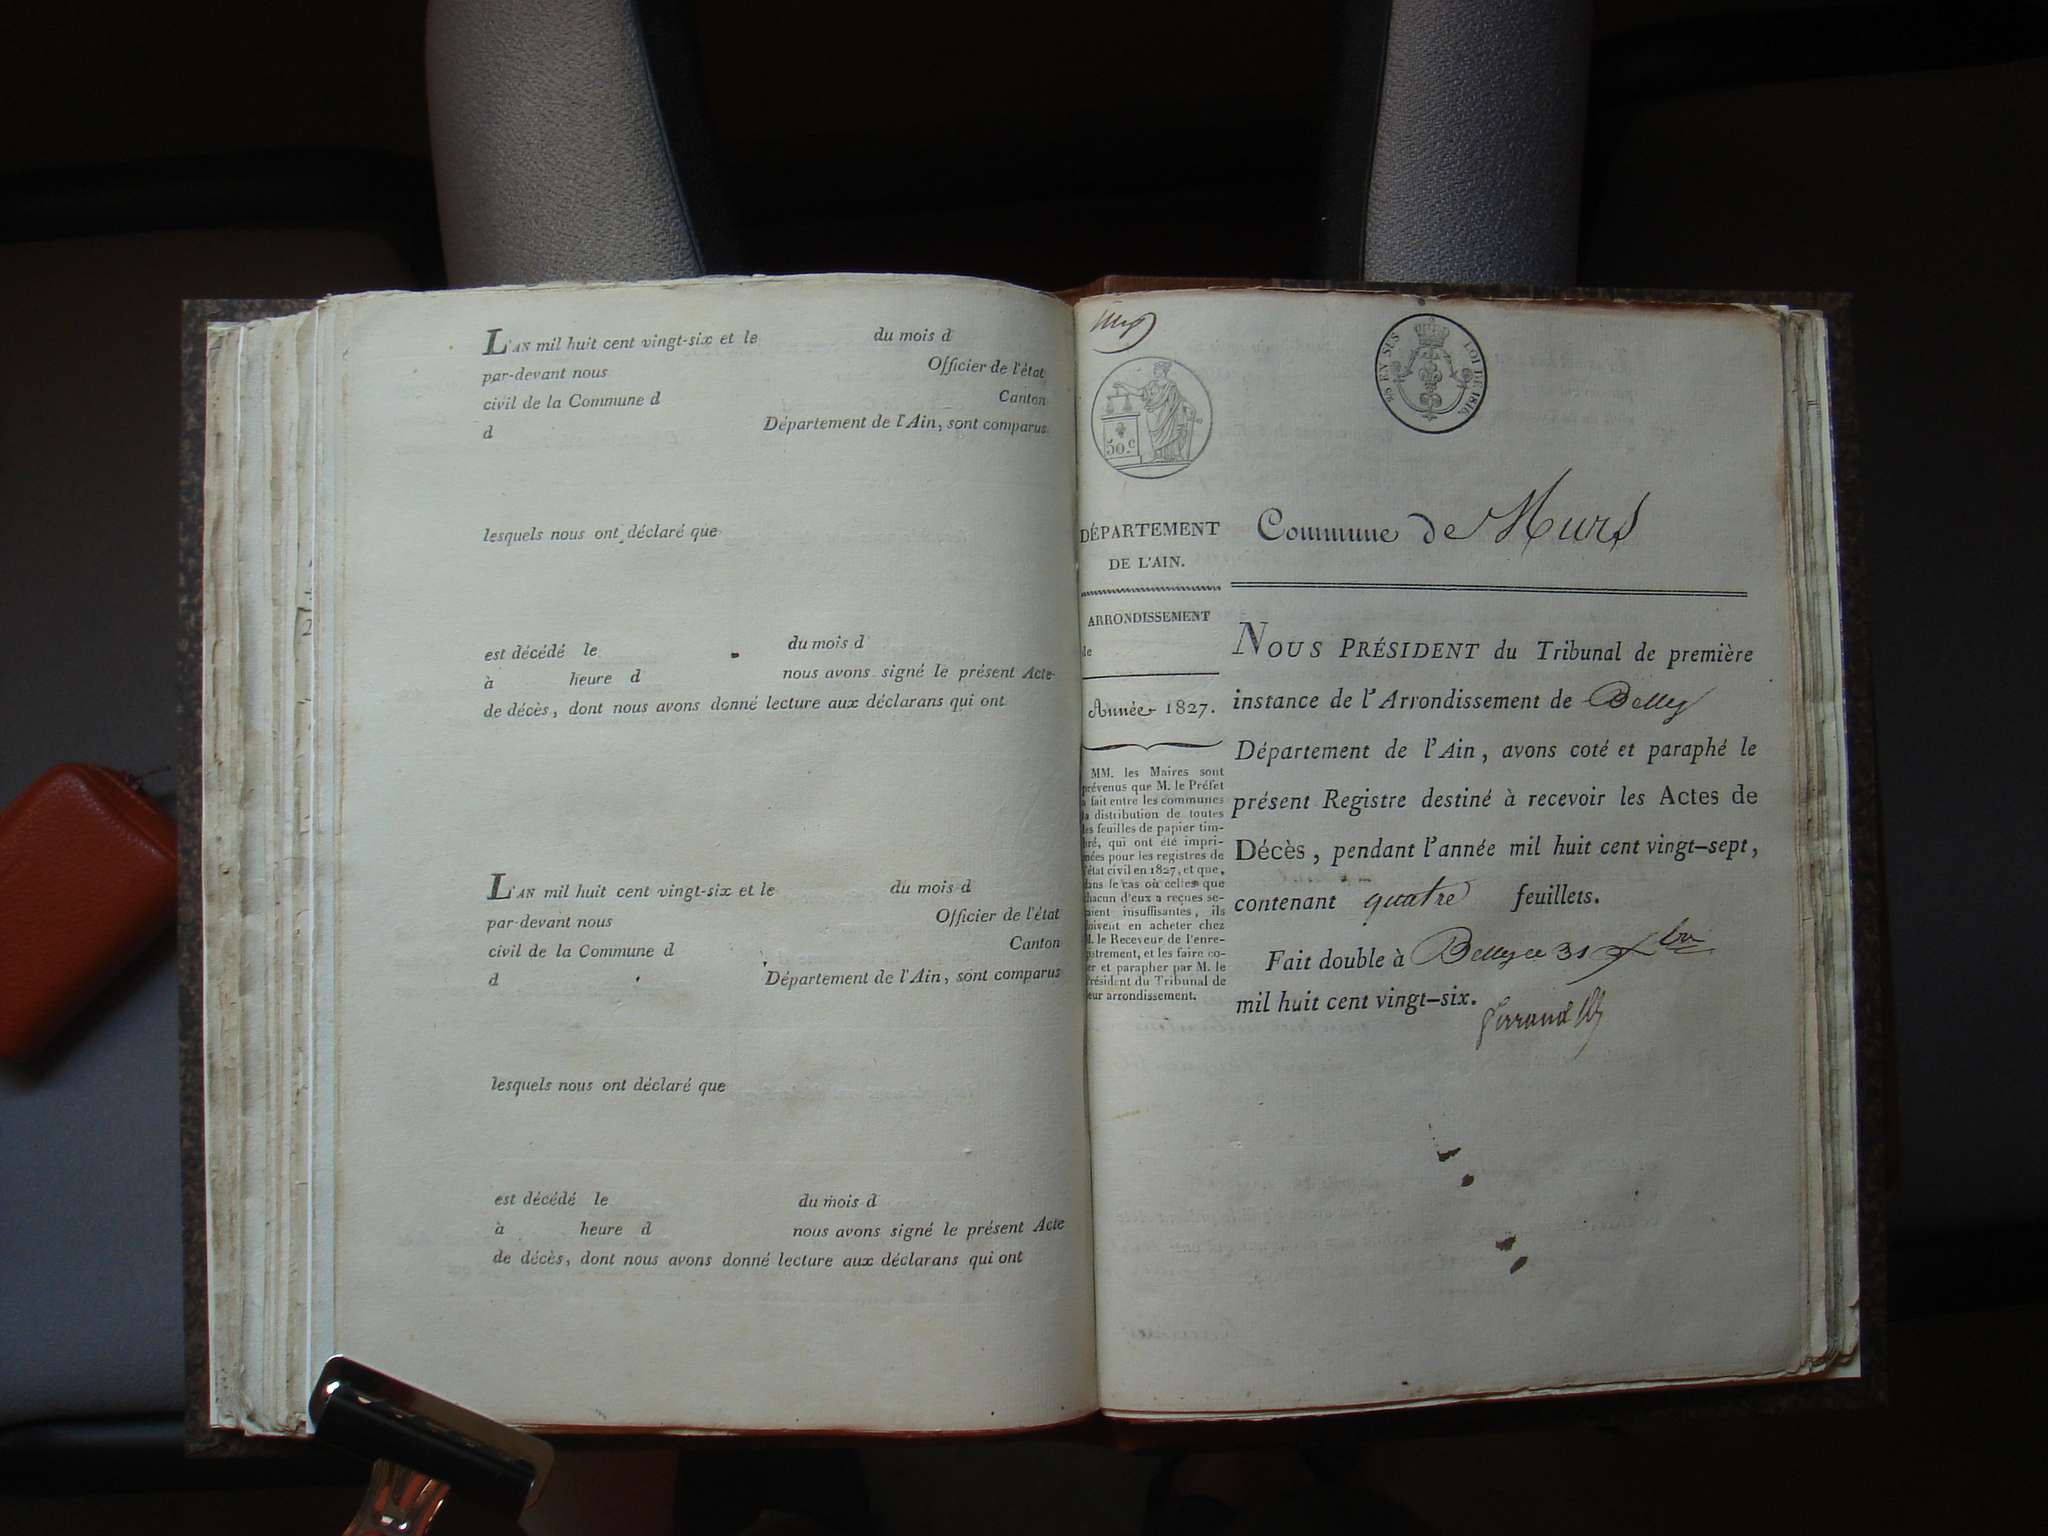 L'AN mil huit cent vingt-six et le du mois d
par-devant nous Officier de l'état
civil de la Commune d Canton
d Département de l'Ain, sont comparus
lesquels nous ont déclaré que
est décédé le du mois d
à heure d nous avons signé le présent Acte
de décès, dont nous avons donné lecture aux déclarans qui ont
L'AN mil huit cent vingt-six et le du mois d
par-devant nous Officier de l'état
civil de la Commune d Canton
d Département de l'Ain, sont comparus
lesquels nous ont déclaré que
est décédé le du mois d
à heure d nous avons signé le présent Acte
de décès, dont nous avons donné lecture aux déclarans qui ont
50.c
EN SES LOI DE 1816.
DÉPARTEMENT
DE L'AIN.
ARRONDISSEMENT
de
Année 1827.
MM. les Maires sont
prévenus que M. le Préfet
a fait entre les communes
la distribution de toutes
les feuilles de papier tim-
bré, qui ont été impri-
mées pour les registres de
l'état civil en 1827, et que,
dans le cas où celles que
chacun d'eux a reçues se-
raient insuffisantes, ils
doivent en acheter chez
M. le Receveur de l'enre-
gistrement, et les faire co-
ter et parapher par M. le
Président du Tribunal de
leur arrondissement.
Commune de Murs
NOUS PRÉSIDENT du Tribunal de première
instance de l'Arrondissement de Belley
Département de l'Ain, avons coté et paraphé le
présent Registre destiné à recevoir les Actes de
Décès, pendant l'année mil huit cent vingt-sept,
contenant quatre feuillets.
Fait double à Belley ce 31 xbre
mil huit cent vingt-six.